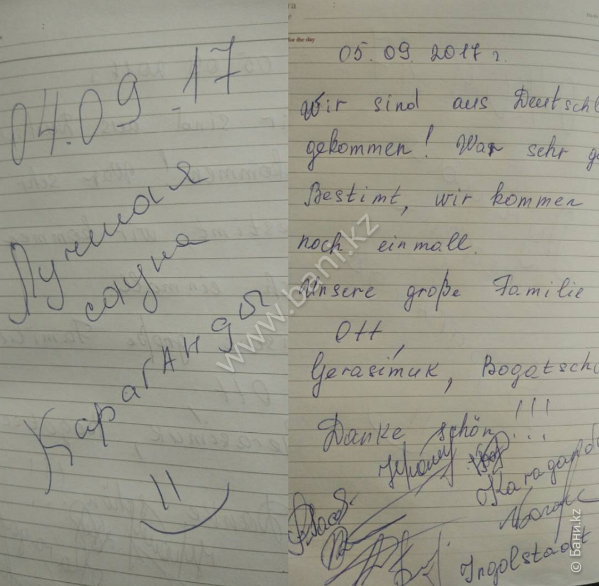 04.09.17
Лучшая
сауна
Караганды
05.09.2017 г.
Wir sind aus Deutschl
gekommen! War sehr g
Bestimt, wir kommen
noch einmall.
Unsere große Familie
Ott,
Gerasimuk, Bogatsch
Danke schön!!!
Karaganda
Ingolstadt
www.bani.kz
© Бани.kz